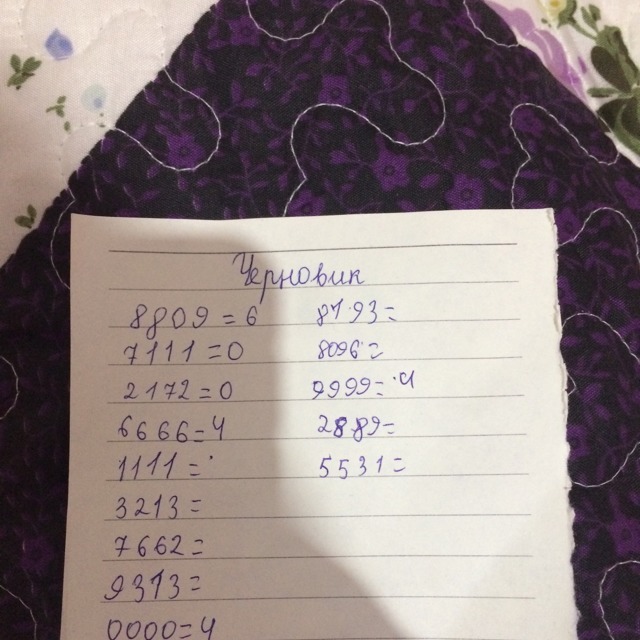 Черновик
8809 = 6 8193=
7111 = 0 8096 =
2172 = 0 9999=4
6666=4 2889=
1111 = 5531=
3213 =
7662 =
9313=
0000=4